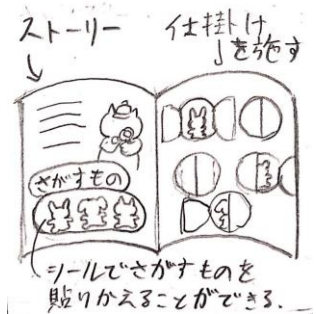 ストーリー
仕掛け
を施す
さがすもの
シールでさがすものを
貼りかえることができる.